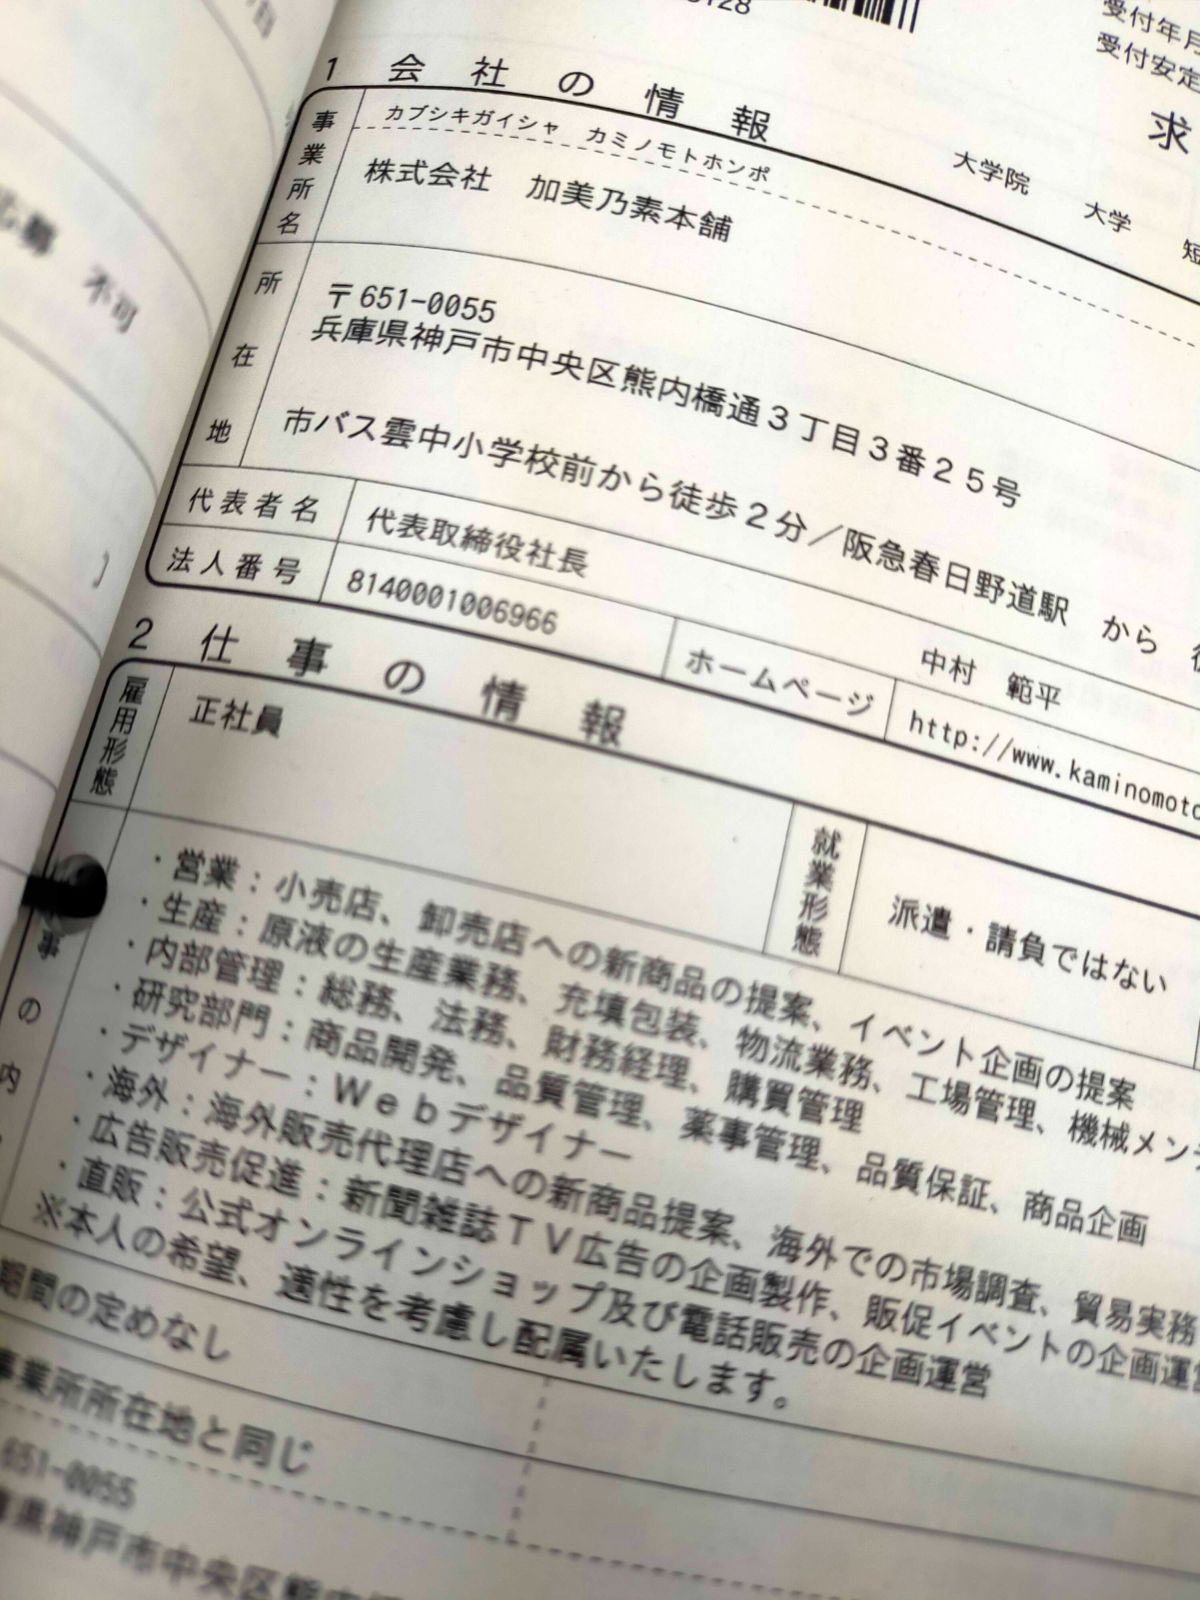 不可
受付年月
受付安定
求
1 会社の情報
大学院 大学 短
事業所名
カブシキガイシャ カミノモトホンポ
株式会社 加美乃素本舗
所在地
〒651-0055
兵庫県神戸市中央区熊内橋通3丁目3番25号
市バス雲中小学校前から徒歩2分／阪急春日野道駅 から
代表者名
代表取締役社長 中村 範平
法人番号
8140001006966
ホームページ
http://www.kaminomoto
2 仕事の情報
雇用形態
正社員
就業形態
派遣・請負ではない
事の内
・営業：小売店、卸売店への新商品の提案、イベント企画の提案
・生産：原液の生産業務、充填包装、物流業務、工場管理、機械メンテ
・内部管理：総務、法務、財務経理、購買管理
・研究部門：商品開発、品質管理、薬事管理、品質保証、商品企画
・デザイナー：Ｗｅｂデザイナー
・海外：海外販売代理店への新商品提案、海外での市場調査、貿易実務
・広告販売促進：新聞雑誌ＴＶ広告の企画製作、販促イベントの企画運営
・直販：公式オンラインショップ及び電話販売の企画運営
※本人の希望、適性を考慮し配属いたします。
期間の定めなし
事業所所在地と同じ
651-0055
県神戸市中央区熊内